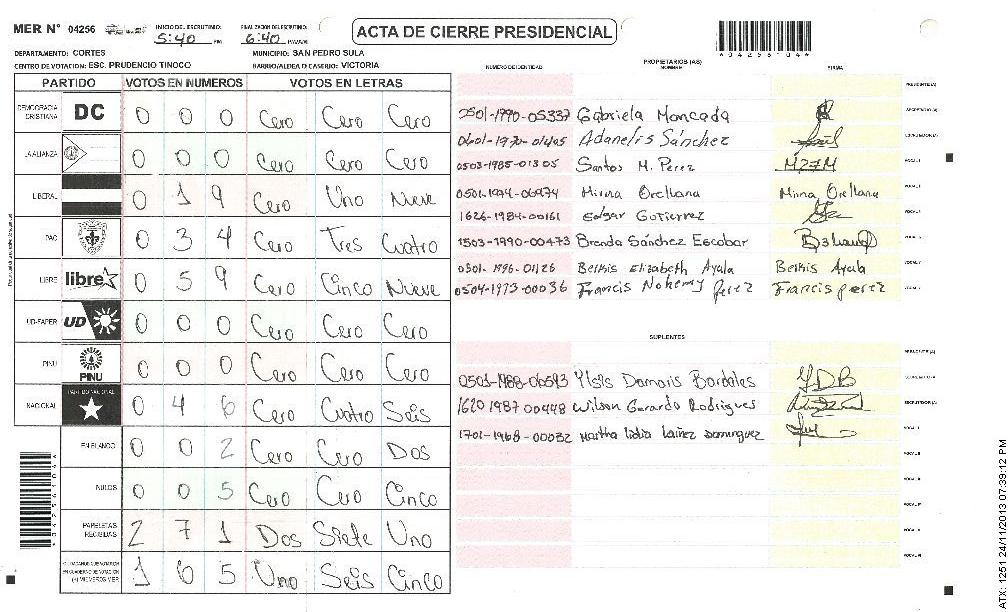 MER N° 04256 INICIO DEL ESCRUTINIO: 5:40 PM FINALIZACION DEL ESCRUTINIO: 6:40 PM/AM
ACTA DE CIERRE PRESIDENCIAL
*04256104*
DEPARTAMENTO: CORTES MUNICIPIO: SAN PEDRO SULA
CENTRO DE VOTACION: ESC. PRUDENCIO TINOCO BARRIO/ALDEA O CASERIO: VICTORIA
PARTIDO VOTOS EN NUMEROS VOTOS EN LETRAS
DEMOCRACIA CRISTIANA DC 0 0 0 Cero Cero Cero
LA ALIANZA 0 0 0 Cero Cero Cero
LIBERAL 0 1 9 Cero Uno Nueve
PAC 0 3 4 Cero Tres Cuatro
LIBRE libre 0 5 9 Cero Cinco Nueve
UD-FAPER UD 0 0 0 Cero Cero Cero
PINU PINU 0 0 0 Cero Cero Cero
NACIONAL PARTIDO NACIONAL 0 4 6 Cero Cuatro Seis
EN BLANCO 0 0 2 Cero Cero Dos
NULOS 0 0 5 Cero Cero Cinco
PAPELETAS RECIBIDAS 2 7 1 Dos Siete Uno
(+) MIEMBROS MER 1 6 5 Uno Seis Cinco
NUMERO DE IDENTIDAD PROPIETARIOS (AS) NOMBRE FIRMA
PRESIDENTE (A)
0501-1990-05337 Gabriela Moncada SECRETARIO (A)
Adanelis Sánchez ESCRUTADOR (A)
0503-1985-01305 Santos M. Perez VOCAL I
0501-1974-06974 Mirna Orellana Mirna Orellana
1626-1984-00161 Edgar Gutierrez
1503-1990-00473 Brenda Sánchez Escobar
Belkis Elizabeth Ayala Belkis Ayala
0504-1973-00036 Francis Nohemy perez Francis perez
SUPLENTES
PRESIDENTE (A)
0501-1988-00593 Ylsis Damaris Bardales YDB SECRETARIO A
1620 1987 00448 Wilson Gerardo Rodrigues ESCRUTADOR (A)
1701-1968-00032 Martha lidia lainez Dominguez VOCAL I
ATX: 1251 24/11/2013 07:39:12 PM